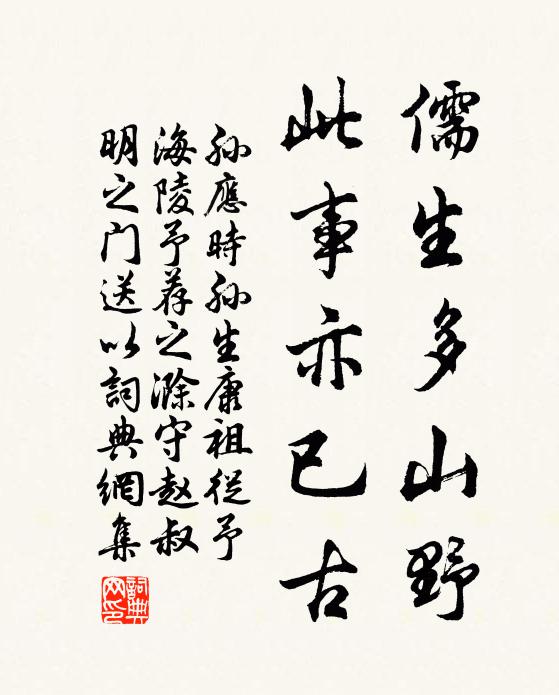 儒生多山野
此事亦已古
孙應時孙生康祖從予
海陵予荐之滁守赵叔
明之门送以詞典網集
詞典網印